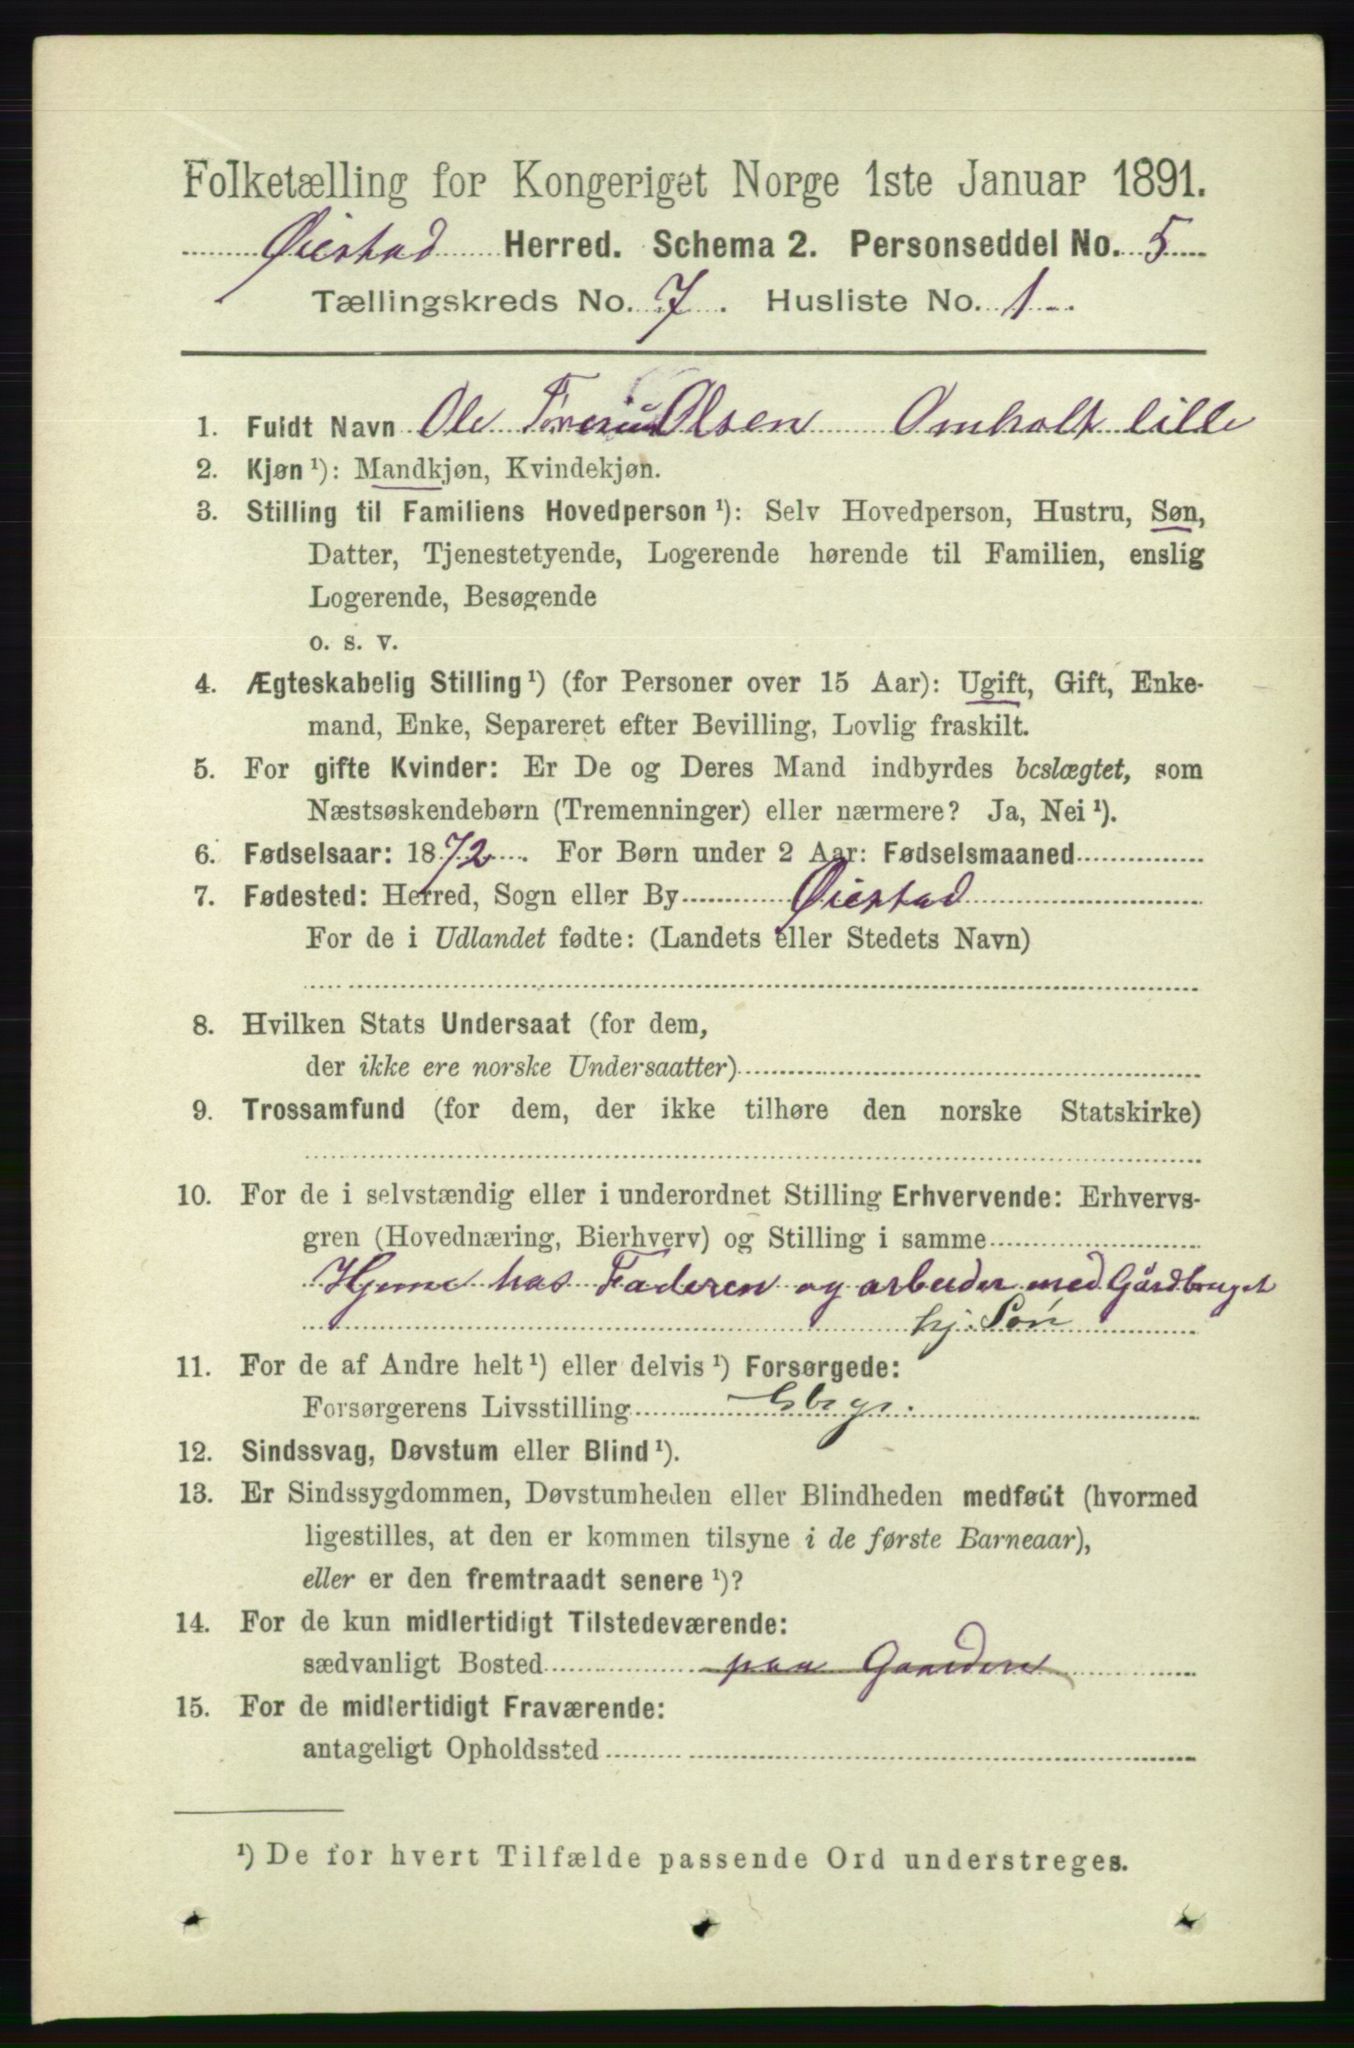 Folketælling for Kongeriget Norge 1ste Januar 1891.
Øiestad Herred. Schema 2. Personseddel No. 5
Tællingskreds No. 7. Husliste No. 1
1. Fuldt Navn Ole Olsen Omholt lille
2. Kjøn ¹): Mandkjøn, Kvindekjøn.
3. Stilling til Familiens Hovedperson ¹): Selv Hovedperson, Hustru, Søn,
Datter, Tjenestetyende, Logerende hørende til Familien, enslig
Logerende, Besøgende
o. s. v.
4. Ægteskabelig Stilling ¹) (for Personer over 15 Aar): Ugift, Gift, Enke-
mand, Enke, Separeret efter Bevilling, Lovlig fraskilt.
5. For gifte Kvinder: Er De og Deres Mand indbyrdes beslægtet, som
Næstsøskendebørn (Tremenninger) eller nærmere? Ja, Nei ¹).
6. Fødselsaar: 1872. For Børn under 2 Aar: Fødselsmaaned
7. Fødested: Herred, Sogn eller By Øiestad
For de i Udlandet fødte: (Landets eller Stedets Navn)
8. Hvilken Stats Undersaat (for dem,
der ikke ere norske Undersaatter)
9. Trossamfund (for dem, der ikke tilhøre den norske Statskirke)
10. For de i selvstændig eller i underordnet Stilling Erhvervende: Erhvervs-
gren (Hovednæring, Bierhverv) og Stilling i samme
Hjeme hos Faderen og arbeider med Gårdbruget
hj. Søn
11. For de af Andre helt ¹) eller delvis ¹) Forsørgede:
Forsørgerens Livsstilling
12. Sindssvag, Døvstum eller Blind ¹).
13. Er Sindssygdommen, Døvstumheden eller Blindheden medfødt (hvormed
ligestilles, at den er kommen tilsyne i de første Barneaar),
eller er den fremtraadt senere ¹)?
14. For de kun midlertidigt Tilstedeværende:
sædvanligt Bosted paa Gaarden
15. For de midlertidigt Fraværende:
antageligt Opholdssted
¹) De for hvert Tilfælde passende Ord understreges.